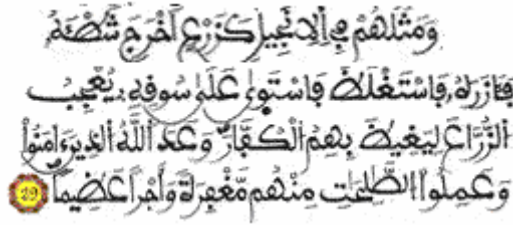 وَمَثَلُهُمْ فِي اِ۬لِانجِيلِ كَزَرْعٍ اَخْرَجَ شَطْـَٔهُۥ
فَـَٔازَرَهُۥ فَاسْتَغْلَظَ فَاسْتَو۪يٰ عَلَيٰ سُوقِهِۦ يُعْجِبُ
اُ۬لزُّرَّاعَ لِيَغِيظَ بِهِمُ اُ۬لْكُفَّارَۖ وَعَدَ اَ۬للَّهُ اُ۬لذِينَ ءَامَنُواْ
وَعَمِلُواْ اُ۬لصَّٰلِحَٰتِ مِنْهُم مَّغْفِرَةٗ وَأَجْراً عَظِيماً 29